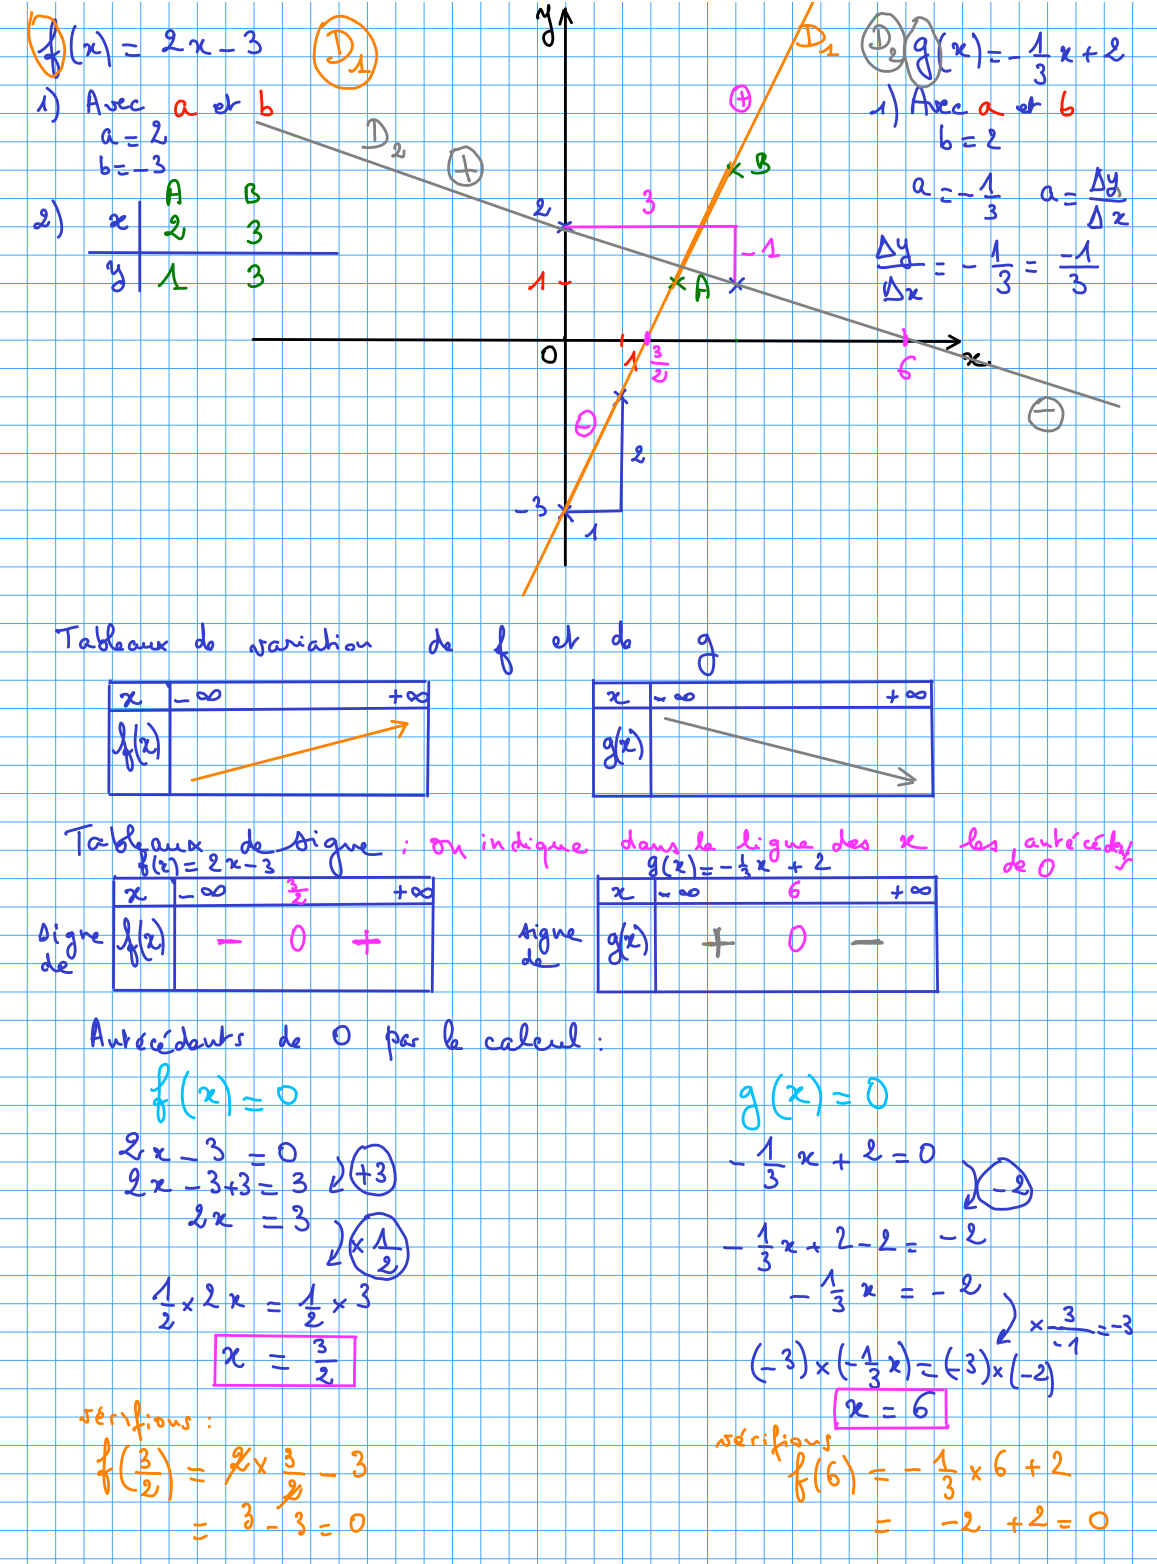 f(x) = 2x - 3
D₁
1) Avec a et b
a = 2
b = -3
2)
A B
x 2 3
y 1 3
D₂
+
y
D₁
+
B
2
3
-1
1
A
0
1
3/2
6
x
-
-
2
-3
1
D₂ g(x) = -1/3 x + 2
1) Avec a et b
b = 2
a = -1/3 a = Δy/Δx
Δy/Δx = -1/3 = -1/3
Tableaux de variation de f et de g
x -∞ +∞
f(x)
x -∞ +∞
g(x)
Tableaux de signe : on indique dans la ligne des x les antécédents
de 0
f(x) = 2x - 3
x -∞ 3/2 +∞
signe de f(x) - 0 +
g(x) = -1/3 x + 2
x -∞ 6 +∞
signe de g(x) + 0 -
Antécédents de 0 par le calcul :
f(x) = 0
2x - 3 = 0
+3
2x - 3 + 3 = 3
2x = 3
× 1/2
1/2 × 2x = 1/2 × 3
x = 3/2
vérifions :
f(3/2) = 2 × 3/2 - 3
= 3 - 3 = 0
g(x) = 0
-1/3 x + 2 = 0
-2
-1/3 x + 2 - 2 = -2
-1/3 x = -2
× 3/-1 = -3
(-3) × (-1/3 x) = (-3) × (-2)
x = 6
vérifions
f(6) = -1/3 × 6 + 2
= -2 + 2 = 0